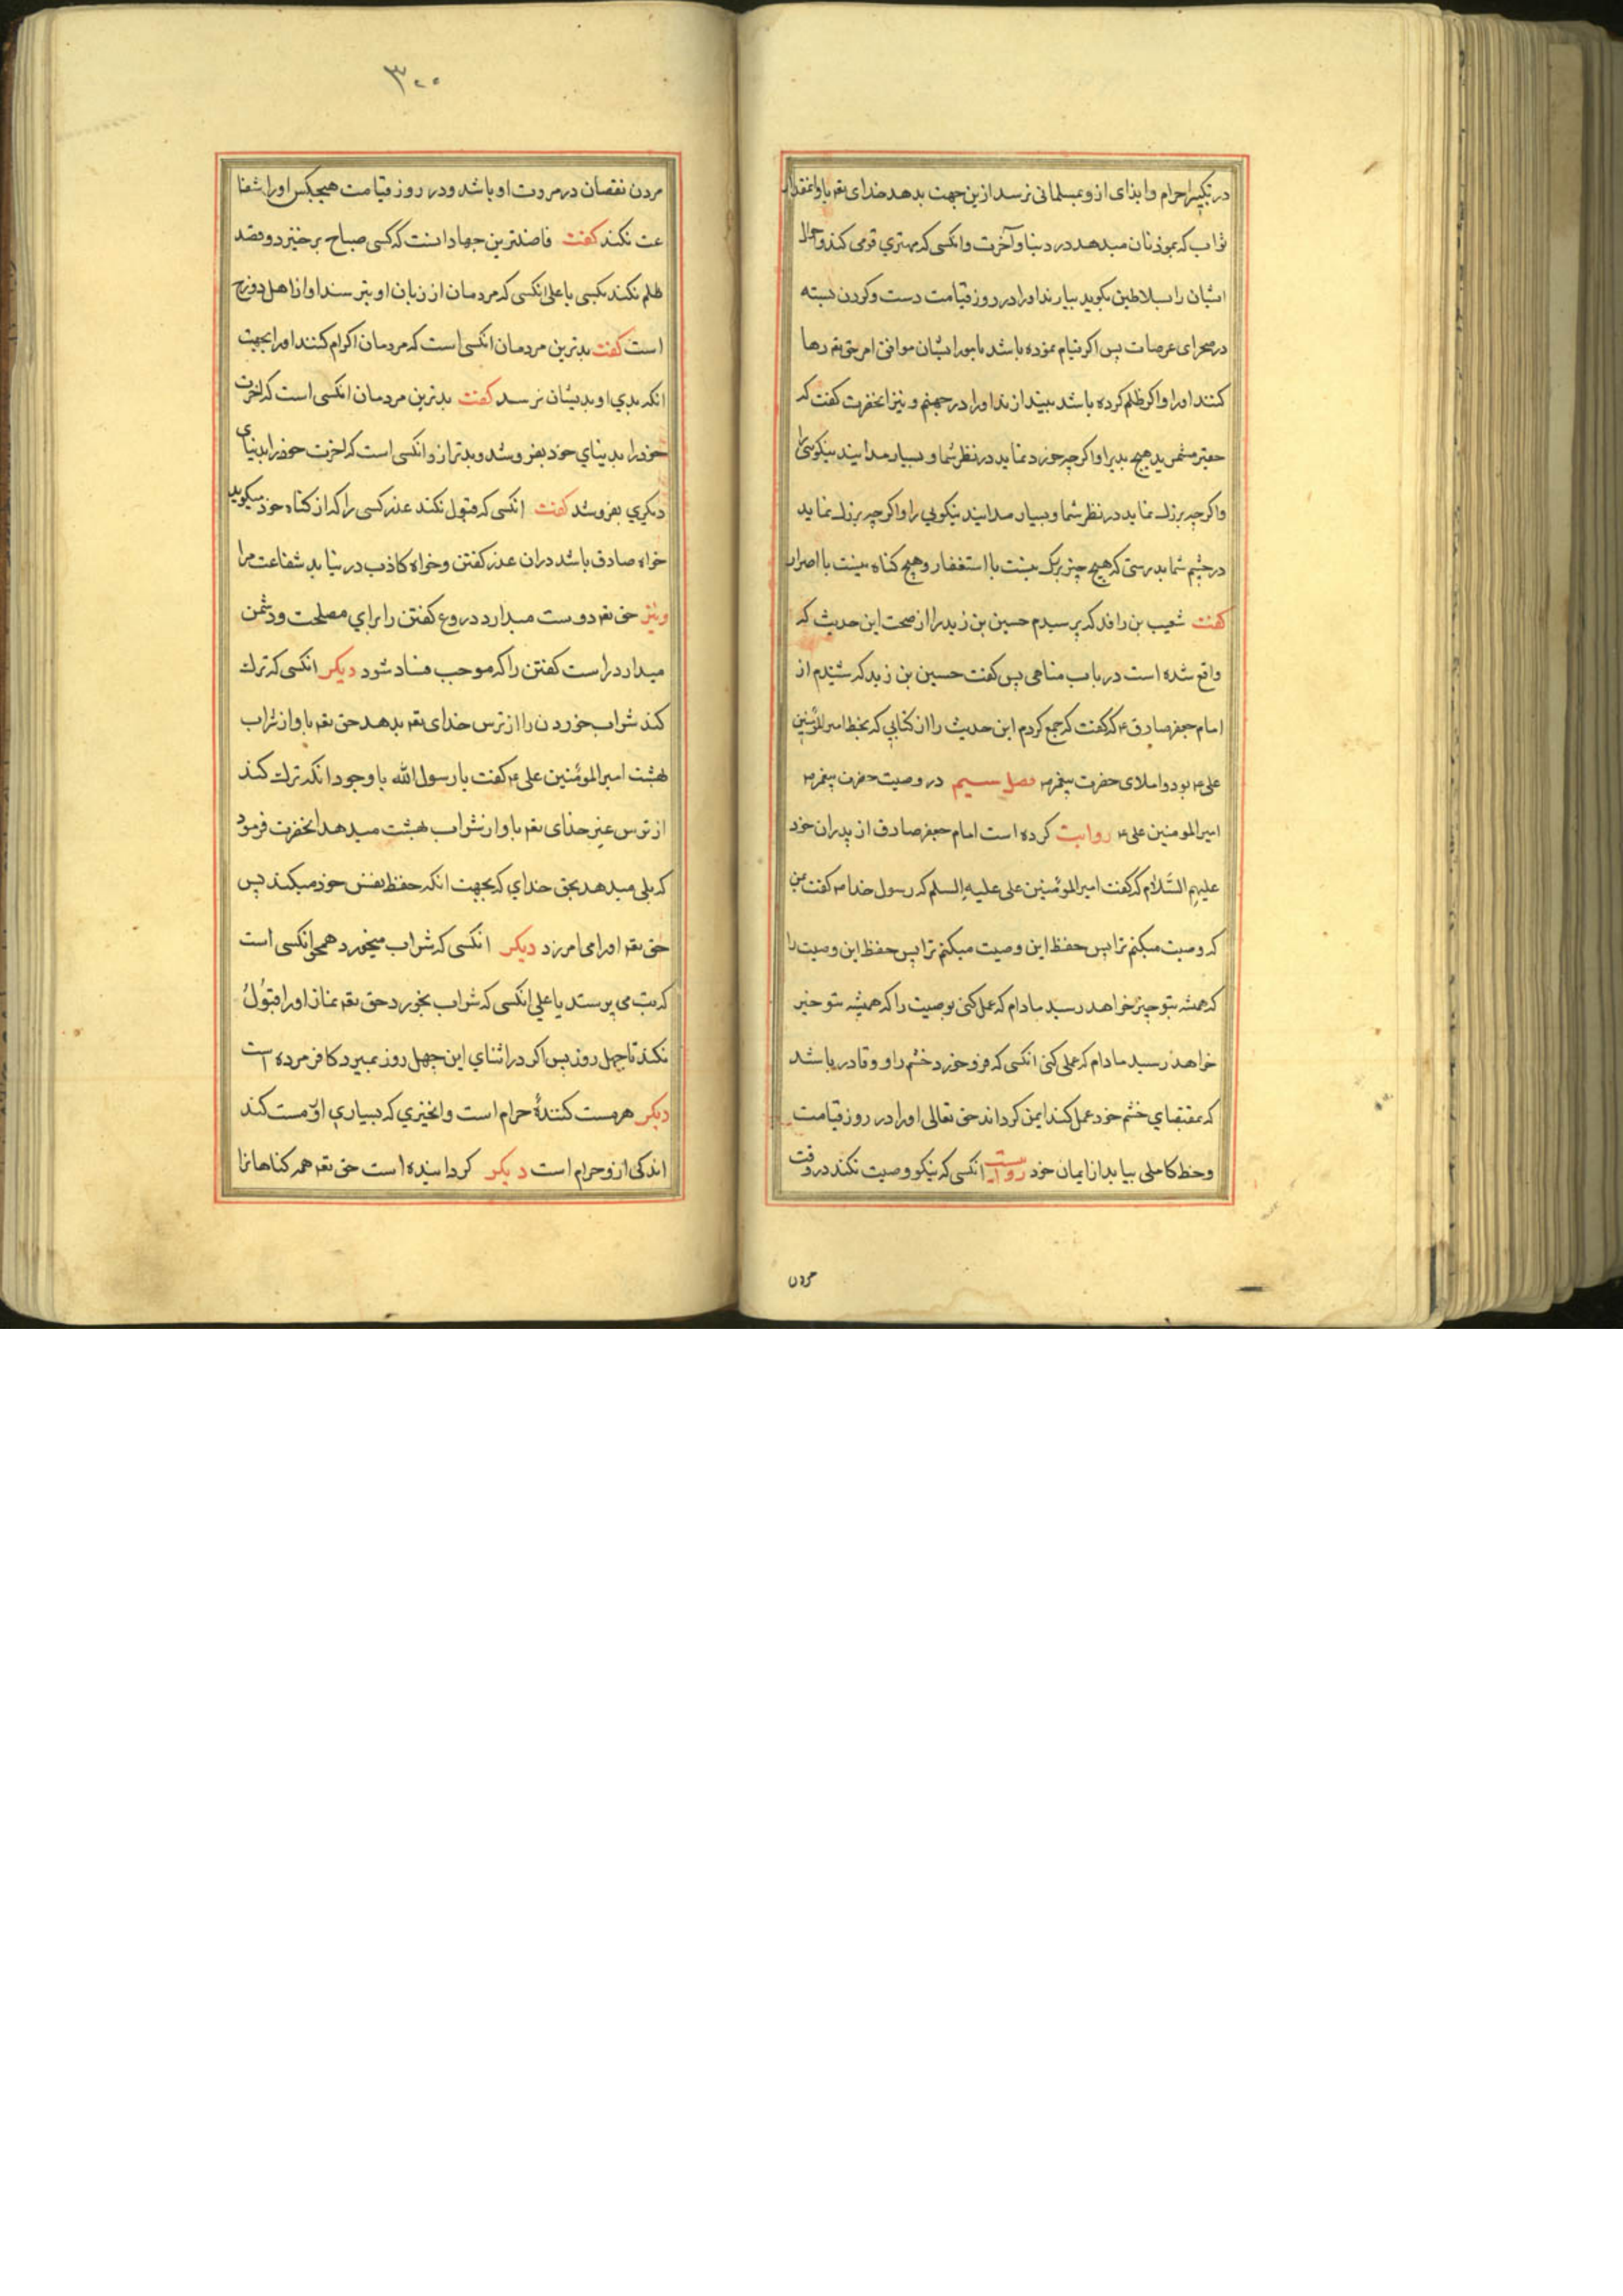 در تکبیر احرام وایذای ازو بمسلمانی نرسد ازین جهت بدهد خدای تعم باو انمقدار
ثواب که بموذنان میدهد در دنیا وآخرت وانکسی که مهتری قومی کند واحوال
ایشان را بسلاطین بکوید بیارند اورا در روز قیامت دست وکردن بسته
در صحرای عرصات پس اکر قیام نموده باشد بامور ایشان موافق امر حق تعم رها
کنند اورا واکر ظلم کرده باشد بیندازند اورا در جهنم و نیز انحضرت کفت که
حقیر مشمرید هیچ بدیرا واکرچه خورد نماید در نظر شما و بسیار مدانید نیکویی را
واکرچه بزرك نماید در نظر شما وبسیار مدانید نیکویی را واکرچه بزرك نماید
در چشم شما بدرستی که هیچ چیز بزرك نیست با استغفار وهیچ کناه نیست با اصرار
کفت شعیب بن راقد که پرسیدم حسین بن زید را از صحت این حدیث که
واقع شده است در باب مناهی پس کفت حسین بن زید که شنیدم از
امام جعفر صادق ع که کفت که جمع کردم این حدیث را از کتابی که بخط امیرالمؤمنین
علی ع بود واملای حضرت پیغمبر ص فصل سیم در وصیت حضرت پیغمبر ص
امیرالمومنین علی ع روایت کرده است امام جعفر صادق از پدران خود
علیهم السّلام که کفت امیرالمؤمنین علی علیه السلم که رسول خدا ص کفت بمن
که وصیت میکنم ترا پس حفظ این وصیت میکنم ترا پس حفظ این وصیت را
که همیشه بتو چیز خواهد رسید مادام که عمل کنی بوصیت را که همیشه بتو خیر
خواهد رسید مادام که عمل کنی انکسی که فرو خورد خشم را و و قادر باشد
که بمقتضای خشم خود عمل کند ایمن کرداند حق تعالی اورا در روز قیامت
وحظ کاملی بیابد از ایمان خود روایت انکسی که نیکو وصیت نکند در وقت
مردن
۳۰۰
مردن نقصان در مروت او باشد ودر روز قیامت هیچکس اورا شفا
عت نکند کفت فاضلترین جهاد انست که کسی صباح برخیزد وقصد
ظلم نکند بکسی یا علی انکسی که مردمان از زبان او بترسند او از اهل دوزخ
است کفت بدترین مردمان انکسی است که مردمان اکرام کنند اورا بجهت
انکه بدی او بدیشان نرسد کفت بدترین مردمان انکسی است که اخرت
خود را بدینای خود بفروشد وبدتر ازو انکسی است که اخرت خود را بدنیای
دیکری بفروشد کفت انکسی که قبول نکند عذر کسی را که از کناه خود میکوید
خواه صادق باشد دران عذر کفتن وخواه کاذب در نیابد شفاعت مرا
ونیز حق تعم دوست میدارد دروغ کفتن را برای مصلحت ودشمن
میدارد راست کفتن را که موجب فساد شود دیکر انکسی که ترك
کند شراب خوردن را از ترس خدای تعم بدهد حق تعم باو از شراب
بهشت امیرالمؤمنین علی ع کفت یا رسول الله با وجود انکه ترك کند
از ترس غیر خدای تعم باو از شراب بهشت میدهد انحضرت فرمود
که بلی میدهد بحق خدای که بجهت انکه حفظ نفس خود میکند پس
حق تعم اورا می امرزد دیکر انکسی که شراب میخورد همچو انکسی است
که بت می پرستد یا علی انکسی که شراب بخورد حق تعم نماز اورا قبول
نکند تا چهل روز پس اکر در اثنای این چهل روز بمیرد کافر مرده است
دیکر هر مست کنندهٔ حرام است وانچیزی که بسیاری او مست کند
اندکی ازو حرام است دیکر کردانیده است حق تعم همه کناهانرا